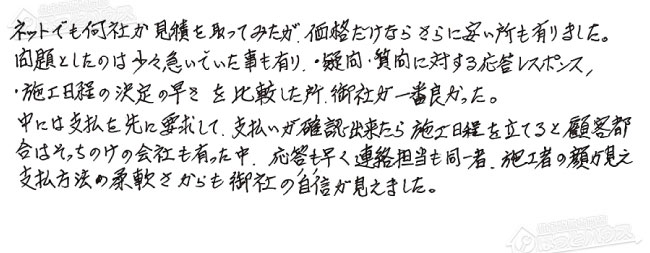 ネットでも何社か見積を取ってみたが、価格だけならさらに安い所も有りました。
問題としたのは少々急いでいた事も有り、・疑問・質問に対する応答レスポンス、
・施工日程の決定の早さ を比較した所、御社が一番良かった。
中には支払を先に要求して、支払いが確認出来たら施工日程を立てると顧客都
合はそっちのけの会社も有った中、応答も早く連絡担当も同一者、施工者の顔が見え
支払方法の柔軟さからも御社の自信が見えました。